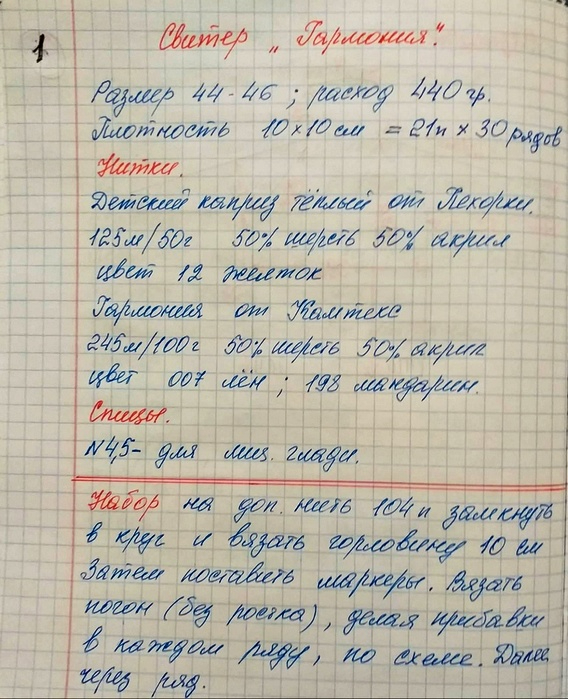 1
Свитер „Гармония".
Размер 44-46 ; расход 440 гр.
Плотность 10×10 см = 21п × 30 рядов
Нитки.
Детский каприз тёплый от Пехорки.
125м/50г 50% шерсть 50% акрил
цвет 12 желток
Гармония от Камтекс
245м/100г 50% шерсть 50% акрил
цвет 007 лён ; 198 мандарин.
Спицы.
N4,5- для лиц. глади.
Набор на доп. нить 104 п замкнуть
в круг и вязать горловину 10 см
Затем поставить маркеры. Вязать
погон (без ростка), делая прибавки
в каждом ряду, по схеме. Далее
через ряд.